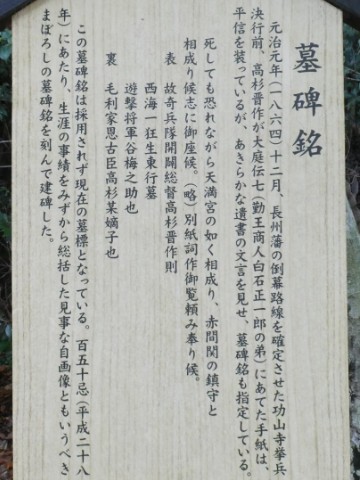 墓碑銘
元治元年(一八六四)十二月、長州藩の倒幕路線を確定させた功山寺挙兵
決行前、高杉晋作が大庭伝七(勤王商人白石正一郎の弟)にあてた手紙は、
平信を装っているが、あきらかな遺書の文言を見せ、墓碑銘も指定している。
死しても恐れながら天満宮の如く相成り、赤間関の鎮守と
相成り候志に御座候。(略)別紙詞作御覧頼み奉り候。
表 故奇兵隊開闢総督高杉晋作則
西海一狂生東行墓
遊撃将軍谷梅之助也
裏 毛利家恩古臣高杉某嫡子也
この墓碑銘は採用されず現在の墓標となっている。百五十忌(平成二十八
年)にあたり、生涯の事績をみずから総括した見事な自画像ともいうべき
まぼろしの墓碑銘を刻んで建碑した。